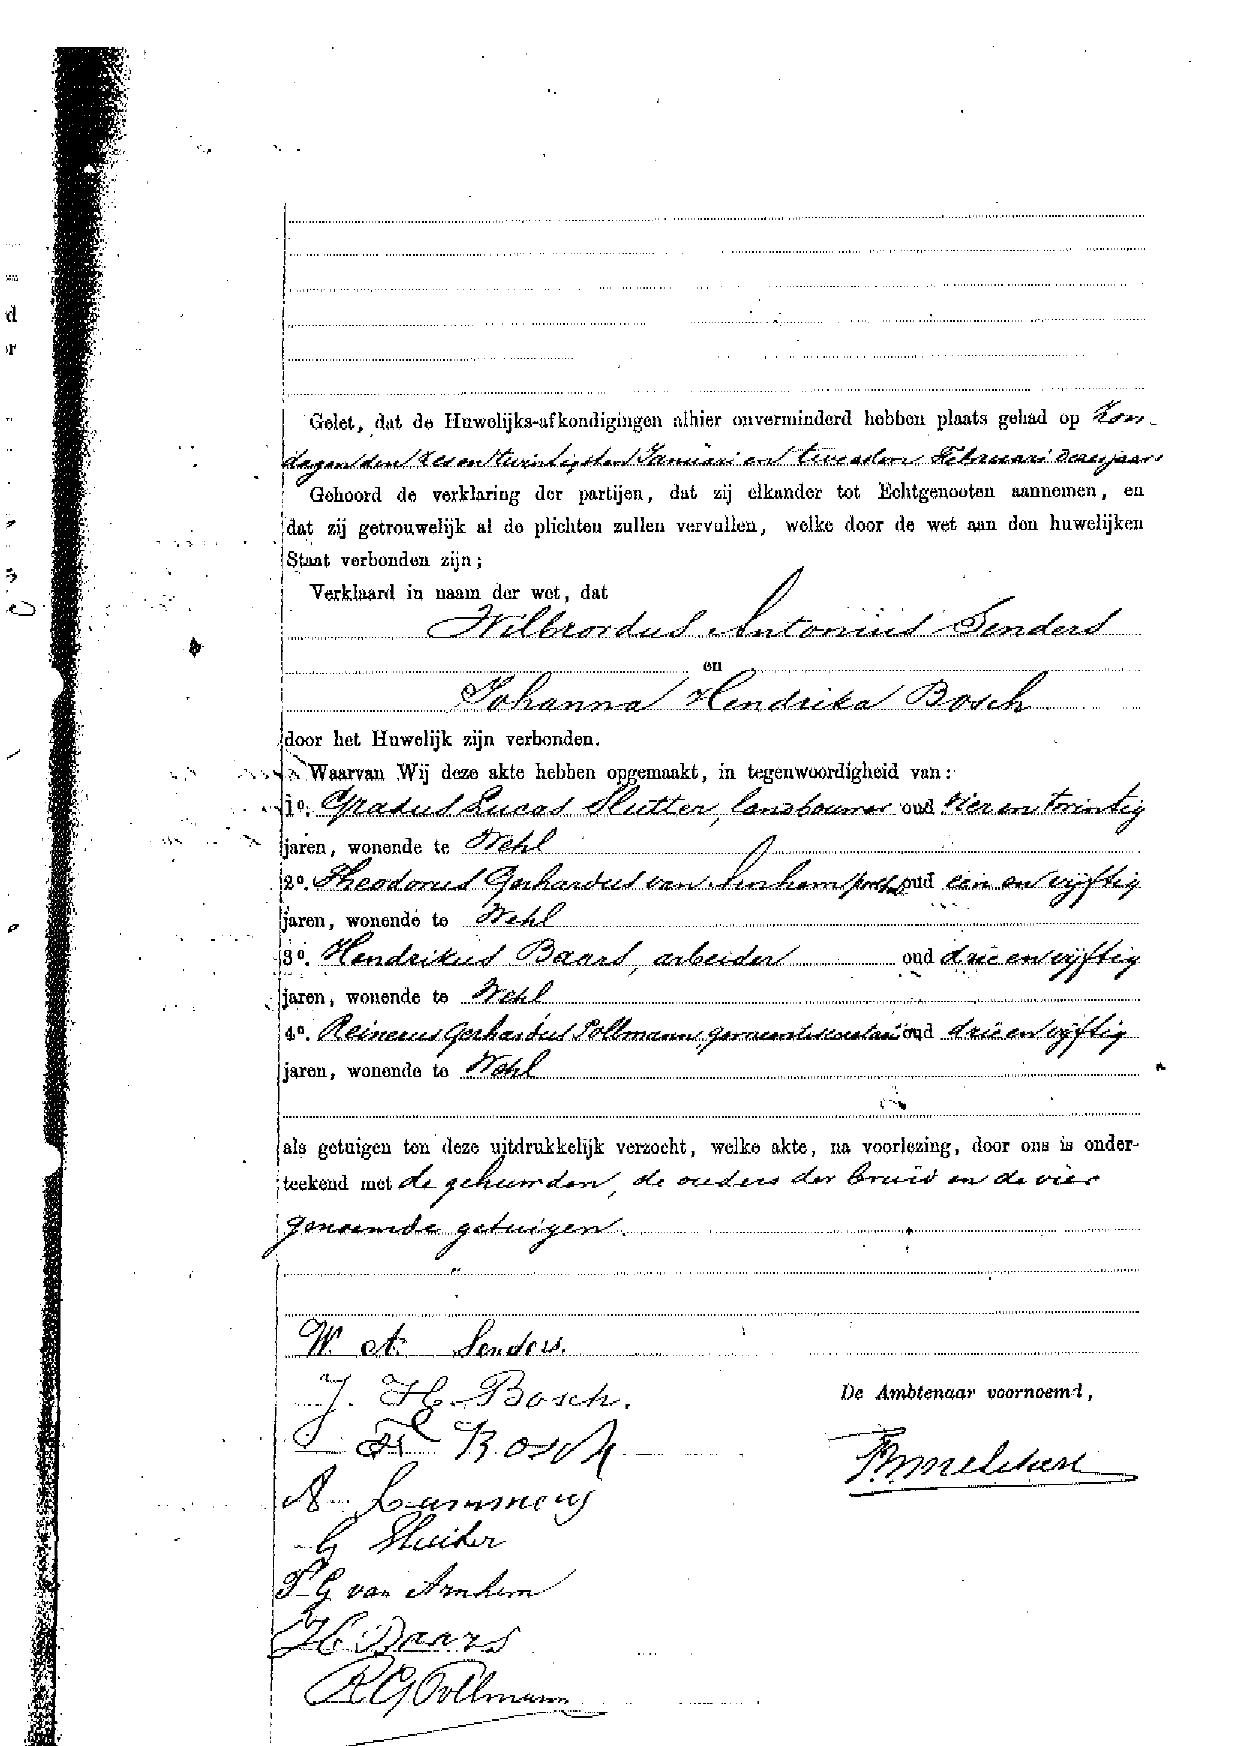 d
or
Gelet, dat de Huwelijks-afkondigingen alhier onverminderd hebben plaats gehad op Zon-
dagen den zes en twintigsten Januari en tweeden Februari dezes jaars
Gehoord de verklaring der partijen, dat zij elkander tot Echtgenooten aannemen, en
dat zij getrouwelijk al de plichten zullen vervullen, welke door de wet aan den huwelijken
Staat verbonden zijn;
Verklaard in naam der wet, dat
Wilbrordus Antonius Senders
en
Johanna Hendrika Bosch
door het Huwelijk zijn verbonden.
Waarvan Wij deze akte hebben opgemaakt, in tegenwoordigheid van:
1o. Gradus Lucas Sluiter, landbouwer oud vier en twintig
jaren, wonende te Wehl
2o. Theodorus Gerhardus van Arnhem, oud een en vijftig
jaren, wonende te Wehl
3o. Hendrikus Baars, arbeider oud drie en vijftig
jaren, wonende te Wehl
4o. Reinerus Gerhardus Pollmann, gemeentesecretaris oud drie en vijftig
jaren, wonende te Wehl
als getuigen ten deze uitdrukkelijk verzocht, welke akte, na voorlezing, door ons is onder-
teekend met de gehuwden, de ouders der bruid en de vier
genoemde getuigen.
W. A. Senders.
J. H. Bosch.
De Ambtenaar voornoemd,
Bosch
A Lammers
G Sluiter
T. G van Arnhem
H Baars
R G Pollmann